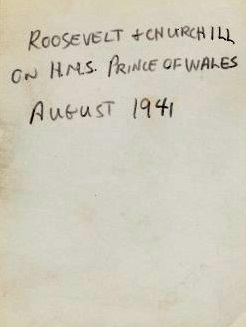 ROOSEVELT + CHURCHILL
ON H.M.S. PRINCE OF WALES
AUGUST 1941